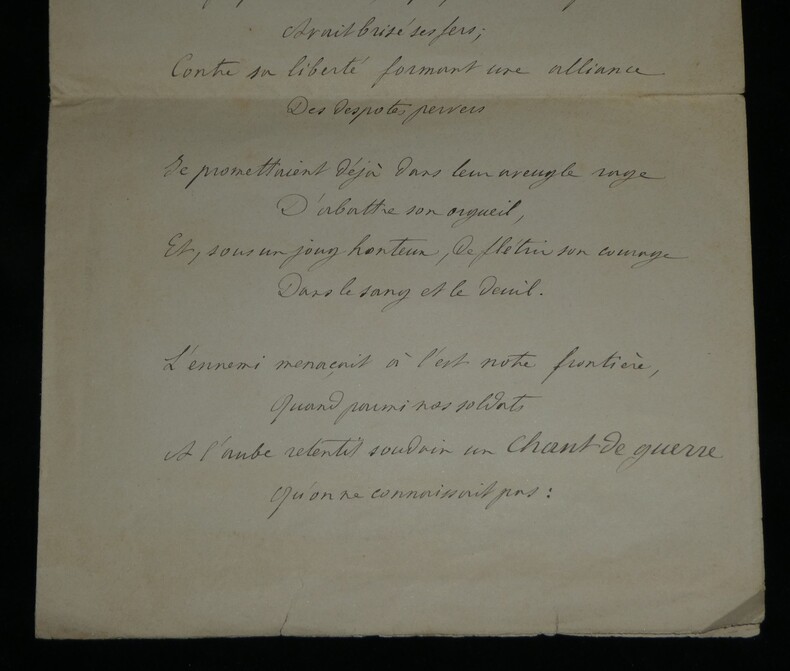 Avait brisé ses fers;
Contre sa liberté formant une alliance
Des despotes pervers
Se promettaient déjà dans leur aveugle rage
D'abattre son orgueil,
Et, sous un joug honteux, de flétrir son courage
Dans le sang et le deuil.
L'ennemi menaçait à l'est notre frontière,
Quand parmi nos soldats
A l'aube retentit soudain un Chant de guerre
Qu'on ne connaissait pas: